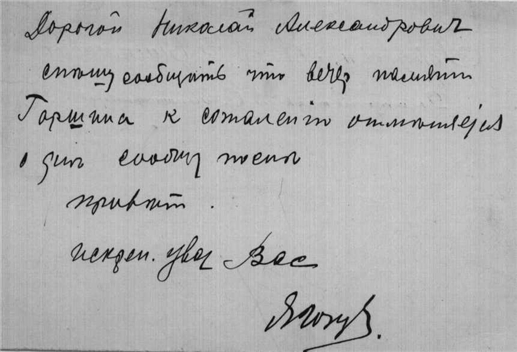 Дорогой Николай Александрович
спешу сообщить что вечер памяти
Гаршина к сожалению отменяется
о дне сообщу
привет.
искрен. ув. Вас